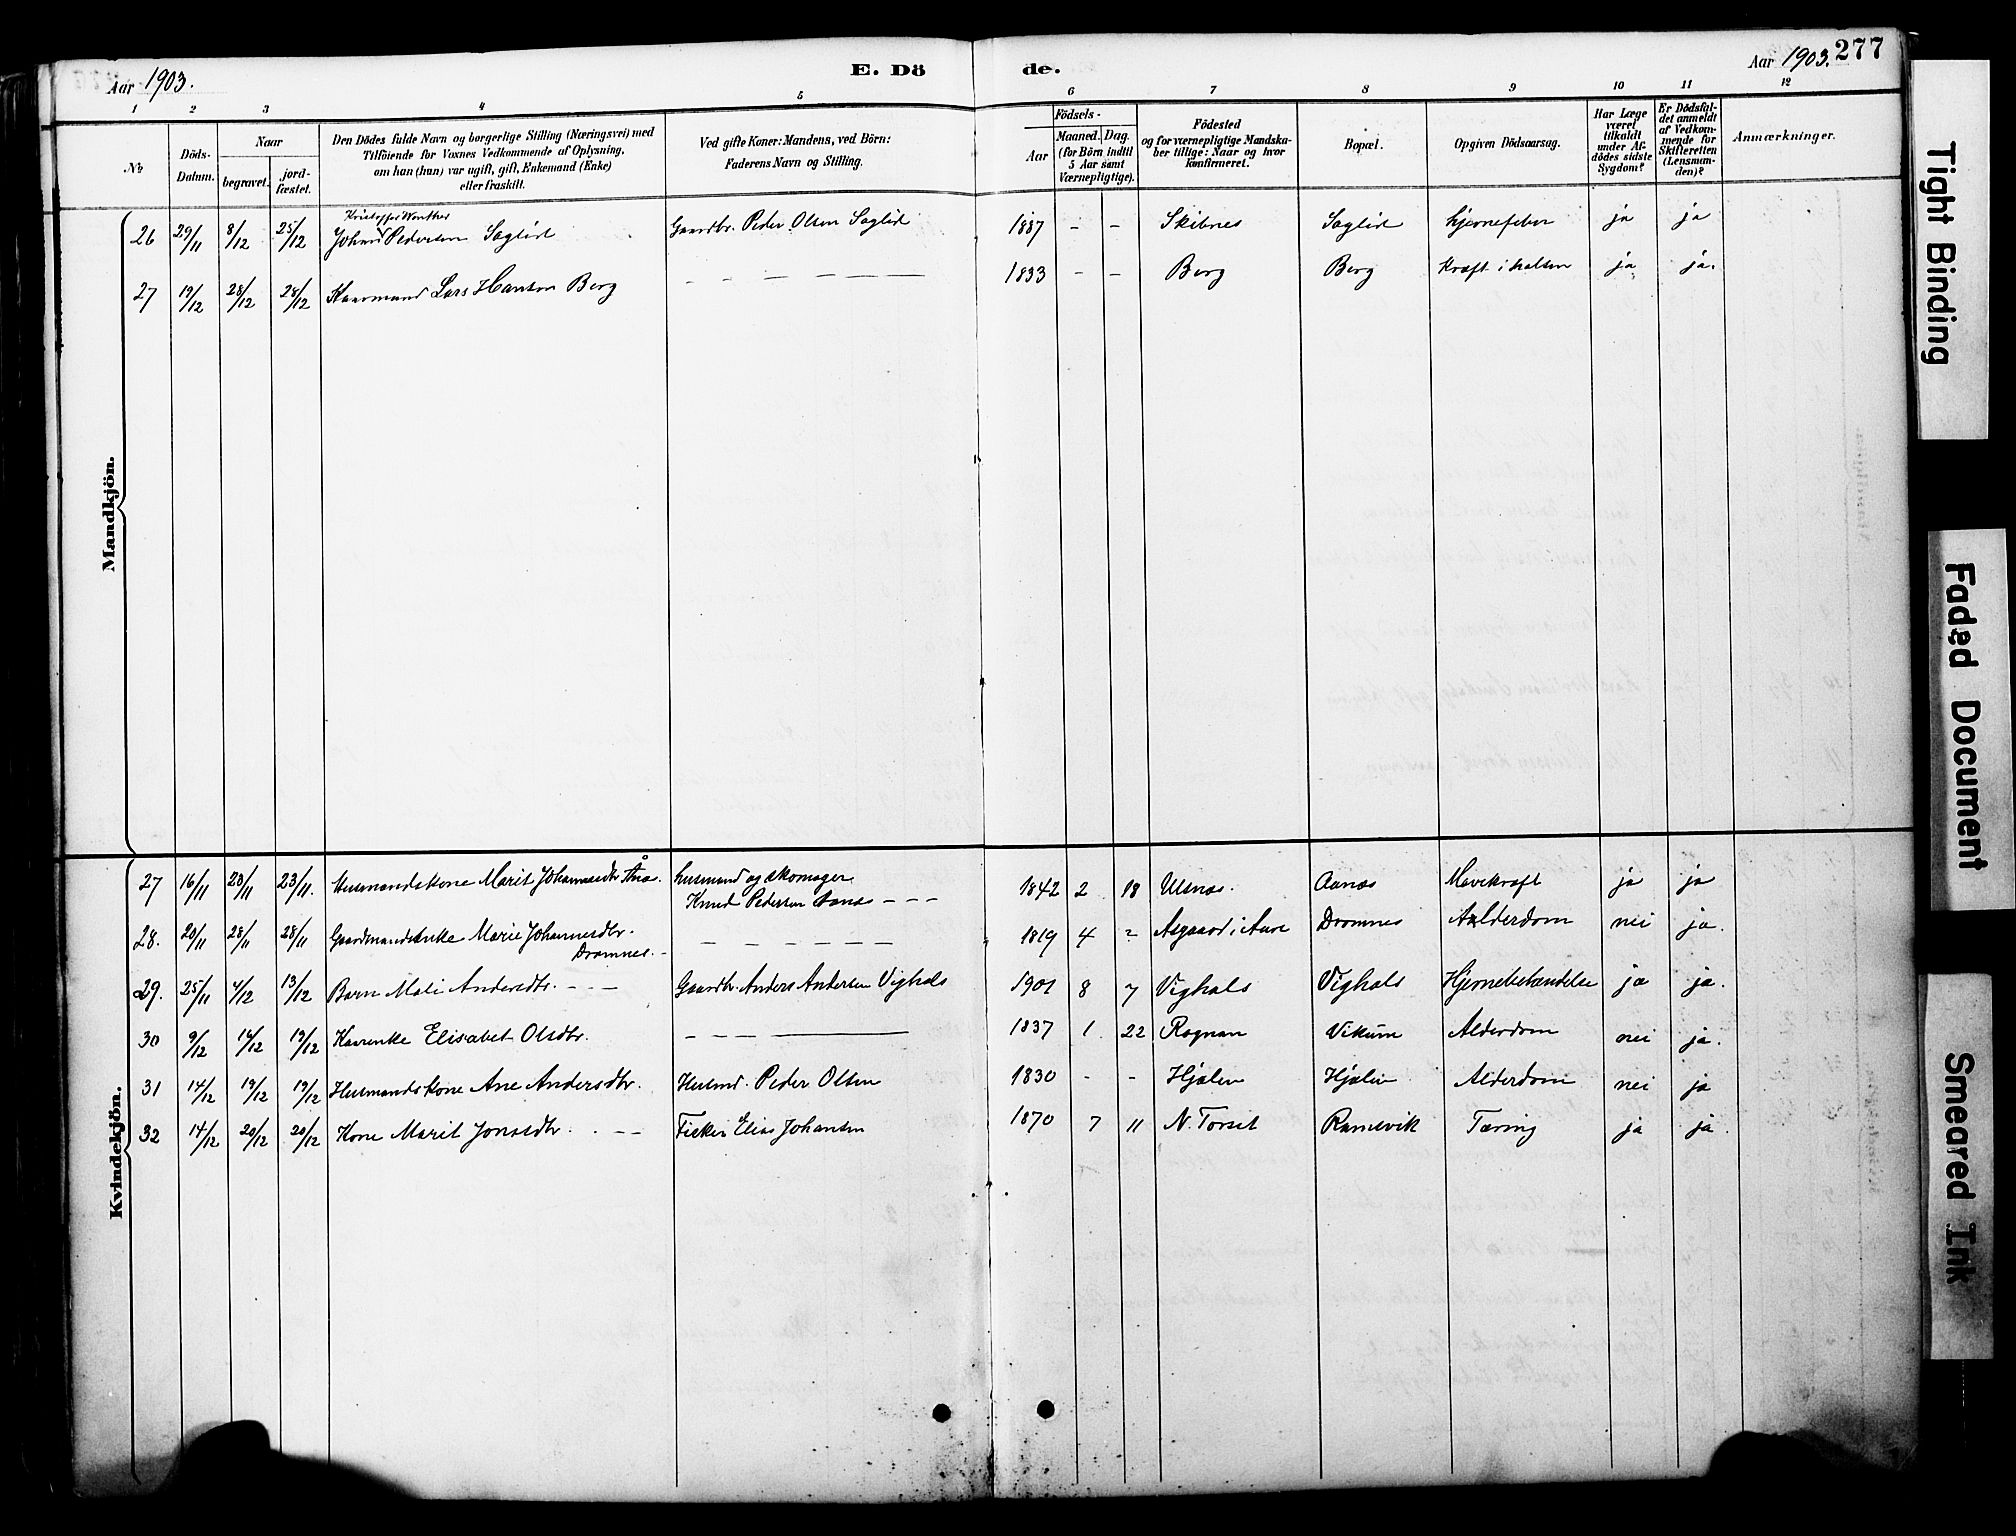 Aar 1903.
E. Dö
de.
Aar 1903. 277
1 2 3 4 5 6 7 8 9 10 11 12
No
Döds-Datum.
Naar
begravet.
jord-fæstet.
Den Dödes fulde Navn og borgerlige Stilling (Næringsvei) med
Tilföiende for Voxnes Vedkommende af Oplysning,
om han (hun) var ugift, gift, Enkemand (Enke)
eller fraskilt.
Ved gifte Koner: Mandens, ved Börn:
Faderens Navn og Stilling.
Födsels-
Aar
Maaned. Dag.
(for Börn indtil
5 Aar samt
Værnepligtige).
Födested
og for værnepligtige Mandska-
ber tillige: Naar og hvor
konfirmeret.
Bopæl.
Opgiven Dödsaarsag.
Har Læge
været
tilkaldt
under Af-
dödes sidste
Sygdom?
Er Dödsfal-
det anmeldt
af Vedkom-
mende for
Skifteretten
(Lensman-
den)?
Anmærkninger.
Mandkjön.
26 29/11 8/12 25/12 Johan Pedersen Saglid Gaardbr. Peder Olsen Saglid 1887 – – Skibnes Saglid Hjernefeber ja ja
27 19/12 28/12 28/12 Kaarmand Lars Hansen Berg – – – – – – 1833 – – Berg Berg Kræft i halsen ja ja.
Kvindekjön.
27 16/11 23/11 23/11. Husmandskone Marit Johannesdtr. Husmand og skomager
Knud Pedersen Aanes – – – 1842 2 18 Ulsnes. Aanes Mavekræft ja ja
28. 20/11 28/11 28/11 Gaardmandsenke Marie Johannesdtr. – – – – – – 1819 4 2 Asgaard i Aure Dromnes Alderdom nei ja.
Dromnes. –
29. 25/11 4/12 13/12 Barn Mali Andersdtr. – – – Gaardbr. Anders Andersen Vighals 1901 8 7 Vighals Vighals Hjernebetændelse ja ja.
30 9/12 14/12 19/12 Kaarenke Elisabet Olsdtr. – – – 1837 1. 22 Rognan Vikum Alderdom nei ja.
31 14/12 19/12 19/12 Husmandskone Ane Andersdtr. Husmd. Peder Olsen 1830 – – Hjælen Hjælen Alderdom nei ja
32 14/12 20/12 20/12 Kone Marit Jonasdtr. – – Fisker Elias Johansen 1870 7 11 N. Torset Ramsvik Tæring ja ja.
Tight Binding
Faded Document
Smeared Ink